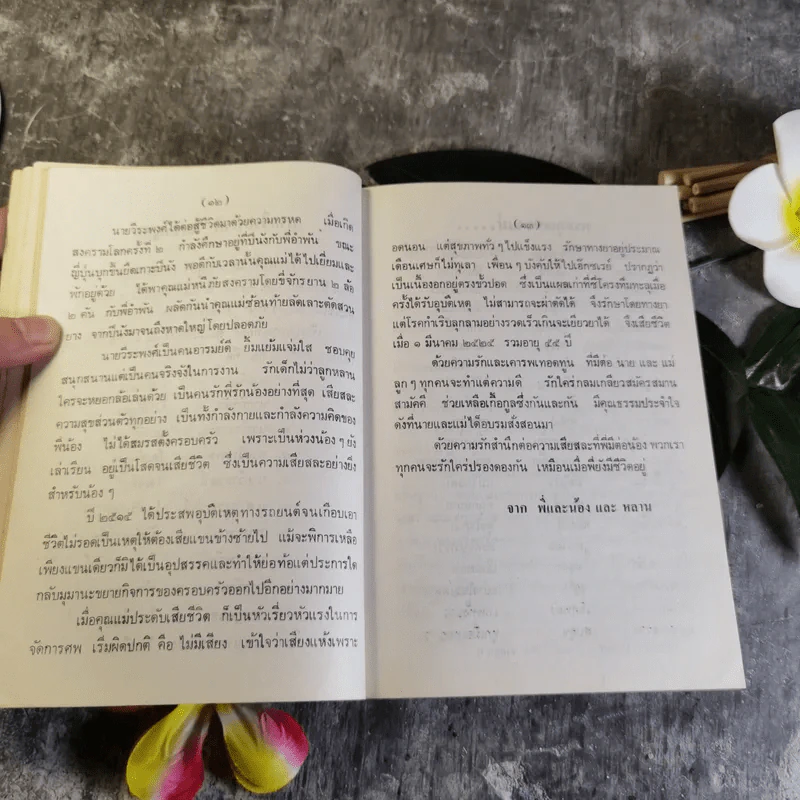 (๑๒)
นายวีระพงศ์ได้ต่อสู้ชีวิตมาด้วยความทรหด เมื่อเกิด
สงครามโลกครั้งที่ ๒ กำลังศึกษาอยู่ที่ปีนังกับพี่อำพัน ขณะ
ญี่ปุ่นบุกขึ้นยึดเกาะปีนัง พอดีกับเวลานั้นคุณแม่ได้ไปเยี่ยมและ
พักอยู่ด้วย ได้พาคุณแม่หนีภัยสงครามโดยขี่จักรยาน ๒ ล้อ
๒ คัน กับพี่อำพัน ผลัดกันนำคุณแม่ซ้อนท้ายลัดเลาะตัดสวน
ยาง จากปีนังมาจนถึงหาดใหญ่ โดยปลอดภัย
นายวีระพงศ์เป็นคนอารมย์ดี ยิ้มแย้มแจ่มใส ชอบคุย
สนุกสนานแต่เป็นคนจริงจังในการงาน รักเด็กไม่ว่าลูกหลาน
ใครจะหยอกล้อเล่นด้วย เป็นคนรักพี่รักน้องอย่างที่สุด เสียสละ
ความสุขส่วนตัวทุกอย่าง เป็นทั้งกำลังกายและกำลังความคิดของ
พี่น้อง ไม่ได้สมรสตั้งครอบครัว เพราะเป็นห่วงน้อง ๆ ยัง
เล่าเรียน อยู่เป็นโสดจนเสียชีวิต ซึ่งเป็นความเสียสละอย่างยิ่ง
สำหรับน้อง ๆ
ปี ๒๕๑๕ ได้ประสพอุบัติเหตุทางรถยนต์จนเกือบเอา
ชีวิตไม่รอดเป็นเหตุให้ต้องเสียแขนข้างซ้ายไป แม้จะพิการเหลือ
เพียงแขนเดียวก็มิได้เป็นอุปสรรคและทำให้ย่อท้อแต่ประการใด
กลับมุมานะขยายกิจการของครอบครัวออกไปอีกอย่างมากมาย
เมื่อคุณแม่ประดับเสียชีวิต ก็เป็นหัวเรี่ยวหัวแรงในการ
จัดการศพ เริ่มผิดปกติ คือ ไม่มีเสียง เข้าใจว่าเสียงแห้งเพราะ
(๑๓)
อดนอน แต่สุขภาพทั่ว ๆ ไปแข็งแรง รักษาทางยาอยู่ประมาณ
เดือนเศษก็ไม่ทุเลา เพื่อน ๆ บังคับให้ไปเอ๊กซเรย์ ปรากฏว่า
เป็นเนื้องอกอยู่ตรงขั้วปอด ซึ่งเป็นแผลเก่าที่ซี่โครงทิ่มทะลุเมื่อ
ครั้งได้รับอุบัติเหตุ ไม่สามารถจะผ่าตัดได้ จึงรักษาโดยทางยา
แต่โรคกำเริบลุกลามอย่างรวดเร็วเกินจะเยียวยาได้ จึงเสียชีวิต
เมื่อ ๑ มีนาคม ๒๕๒๕ รวมอายุ ๕๕ ปี
ด้วยความรักและเคารพเทอดทูน ที่มีต่อ นาย และ แม่
ลูก ๆ ทุกคนจะทำแต่ความดี รักใคร่กลมเกลียวสมัครสมาน
สามัคคี ช่วยเหลือเกื้อกูลซึ่งกันและกัน มีคุณธรรมประจำใจ
ดังที่นายและแม่ได้อบรมสั่งสอนมา
ด้วยความรักสำนึกต่อความเสียสละที่พี่มีต่อน้อง พวกเรา
ทุกคนจะรักใคร่ปรองดองกัน เหมือนเมื่อพี่ยังมีชีวิตอยู่
จาก พี่และน้อง และ หลาน